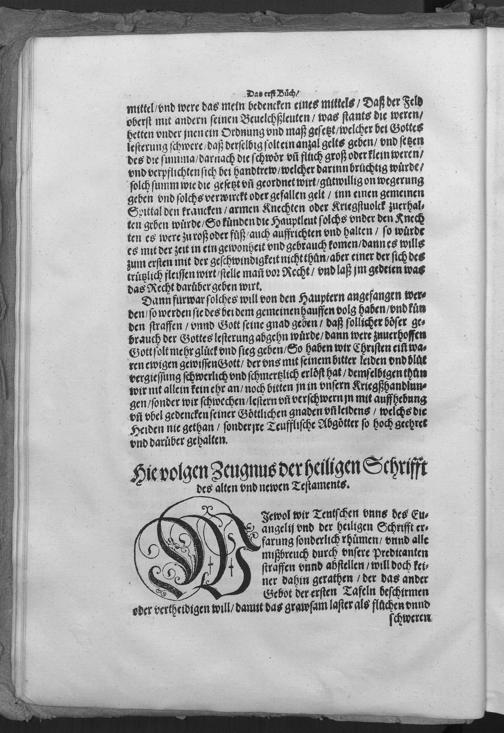 Das erst Buͤch/
mittel/ vnd were das mein bedencken eines mittels/ Daß der Feld
oberst mit andern seinen Beuelchßleuten/ was stants die weren/
hetten vnder jnen ein Ordnung vnd maß gesetzt/ welcher bei Gottes
lesterung schwere/ daß derselbig solt ein anzal gelts geben/ vnd setzen
des die summa/ darnach die schwoͤr vñ fluͤch groß oder klein weren/
vnd verpflichten sich bei handtrew/ welcher darinn bruͤchtig wuͤrde/
solch summ wie die gesetzt vñ geordnet wirt/ guͤtwillig on wegerung
geben vnd solchs verwirckt oder gefallen gelt/ inn einen gemeinen
Spittal den krancken/ armen Knechten oder Kriegsfuolck zuerhal-
ten geben wuͤrde/ So kuͤnden die Hauptleut solchs vnder den Knech
ten es were zu roß oder fuͤß/ auch auffrichten vnd halten/ so wuͤrde
es mit der zeit in ein gewonheit vnd gebrauch komen/ dann es wills
zum ersten mit der geschwindigkeit nicht thuͤn/ aber einer der sich des
truͤtzlich fleissen wirt/ stelle mañ vor Recht/ vnd laß jm gedeien was
das Recht daruͤber geben wirt.
Dann fuͤrwar solches will von den Hauptern angefangen wer-
den/ so werden sie des bei dem gemeinen hauffen volg haben/ vnd kuͤn
den straffen/ vnnd Gott seine gnad geben/ daß sollicher boͤser ge-
brauch der Gottes lesterung abgehn wuͤrde/ dann were zuuerhoffen
Gott solt mehr gluͤck vnd sieg geben/ So haben wir Christen ein wa-
ren ewigen gewissen Gott/ der vns mit seinem bitter leiden vnd bluͤt
vergiessung schwerlich vnd schmertzlich erloͤst hat/ demselbigen thuͤn
wir mit allein kein ehr an/ noch bitten jn in vnsern Kriegßhandlun-
gen/ sonder wir schwechen/ lestern vñ verschwern jn mit auffhebung
vñ vbel gedencken seiner Goͤttlichen gnaden vñ leidens/ welchs die
Heiden nie gethan/ sonder jre Teufflische Abgoͤtter so hoch geehret
vnd daruͤber gehalten.
Hie volgen Zeugnus der heiligen Schrifft
des alten vnd newen Testaments.
WJewol wir Teutschen vnns des Eu-
angelij vnd der heiligen Schrifft er-
farung sonderlich rhuͤmen/ vnnd alle
mißbreuch durch vnsere Predicanten
straffen vnnd abstellen/ will doch kei-
ner dahin gerathen/ der das ander
Gebot der ersten Tafeln beschirmen
oder vertheidigen will/ damit das grawsam laster als fluͤchen vnnd
schweren